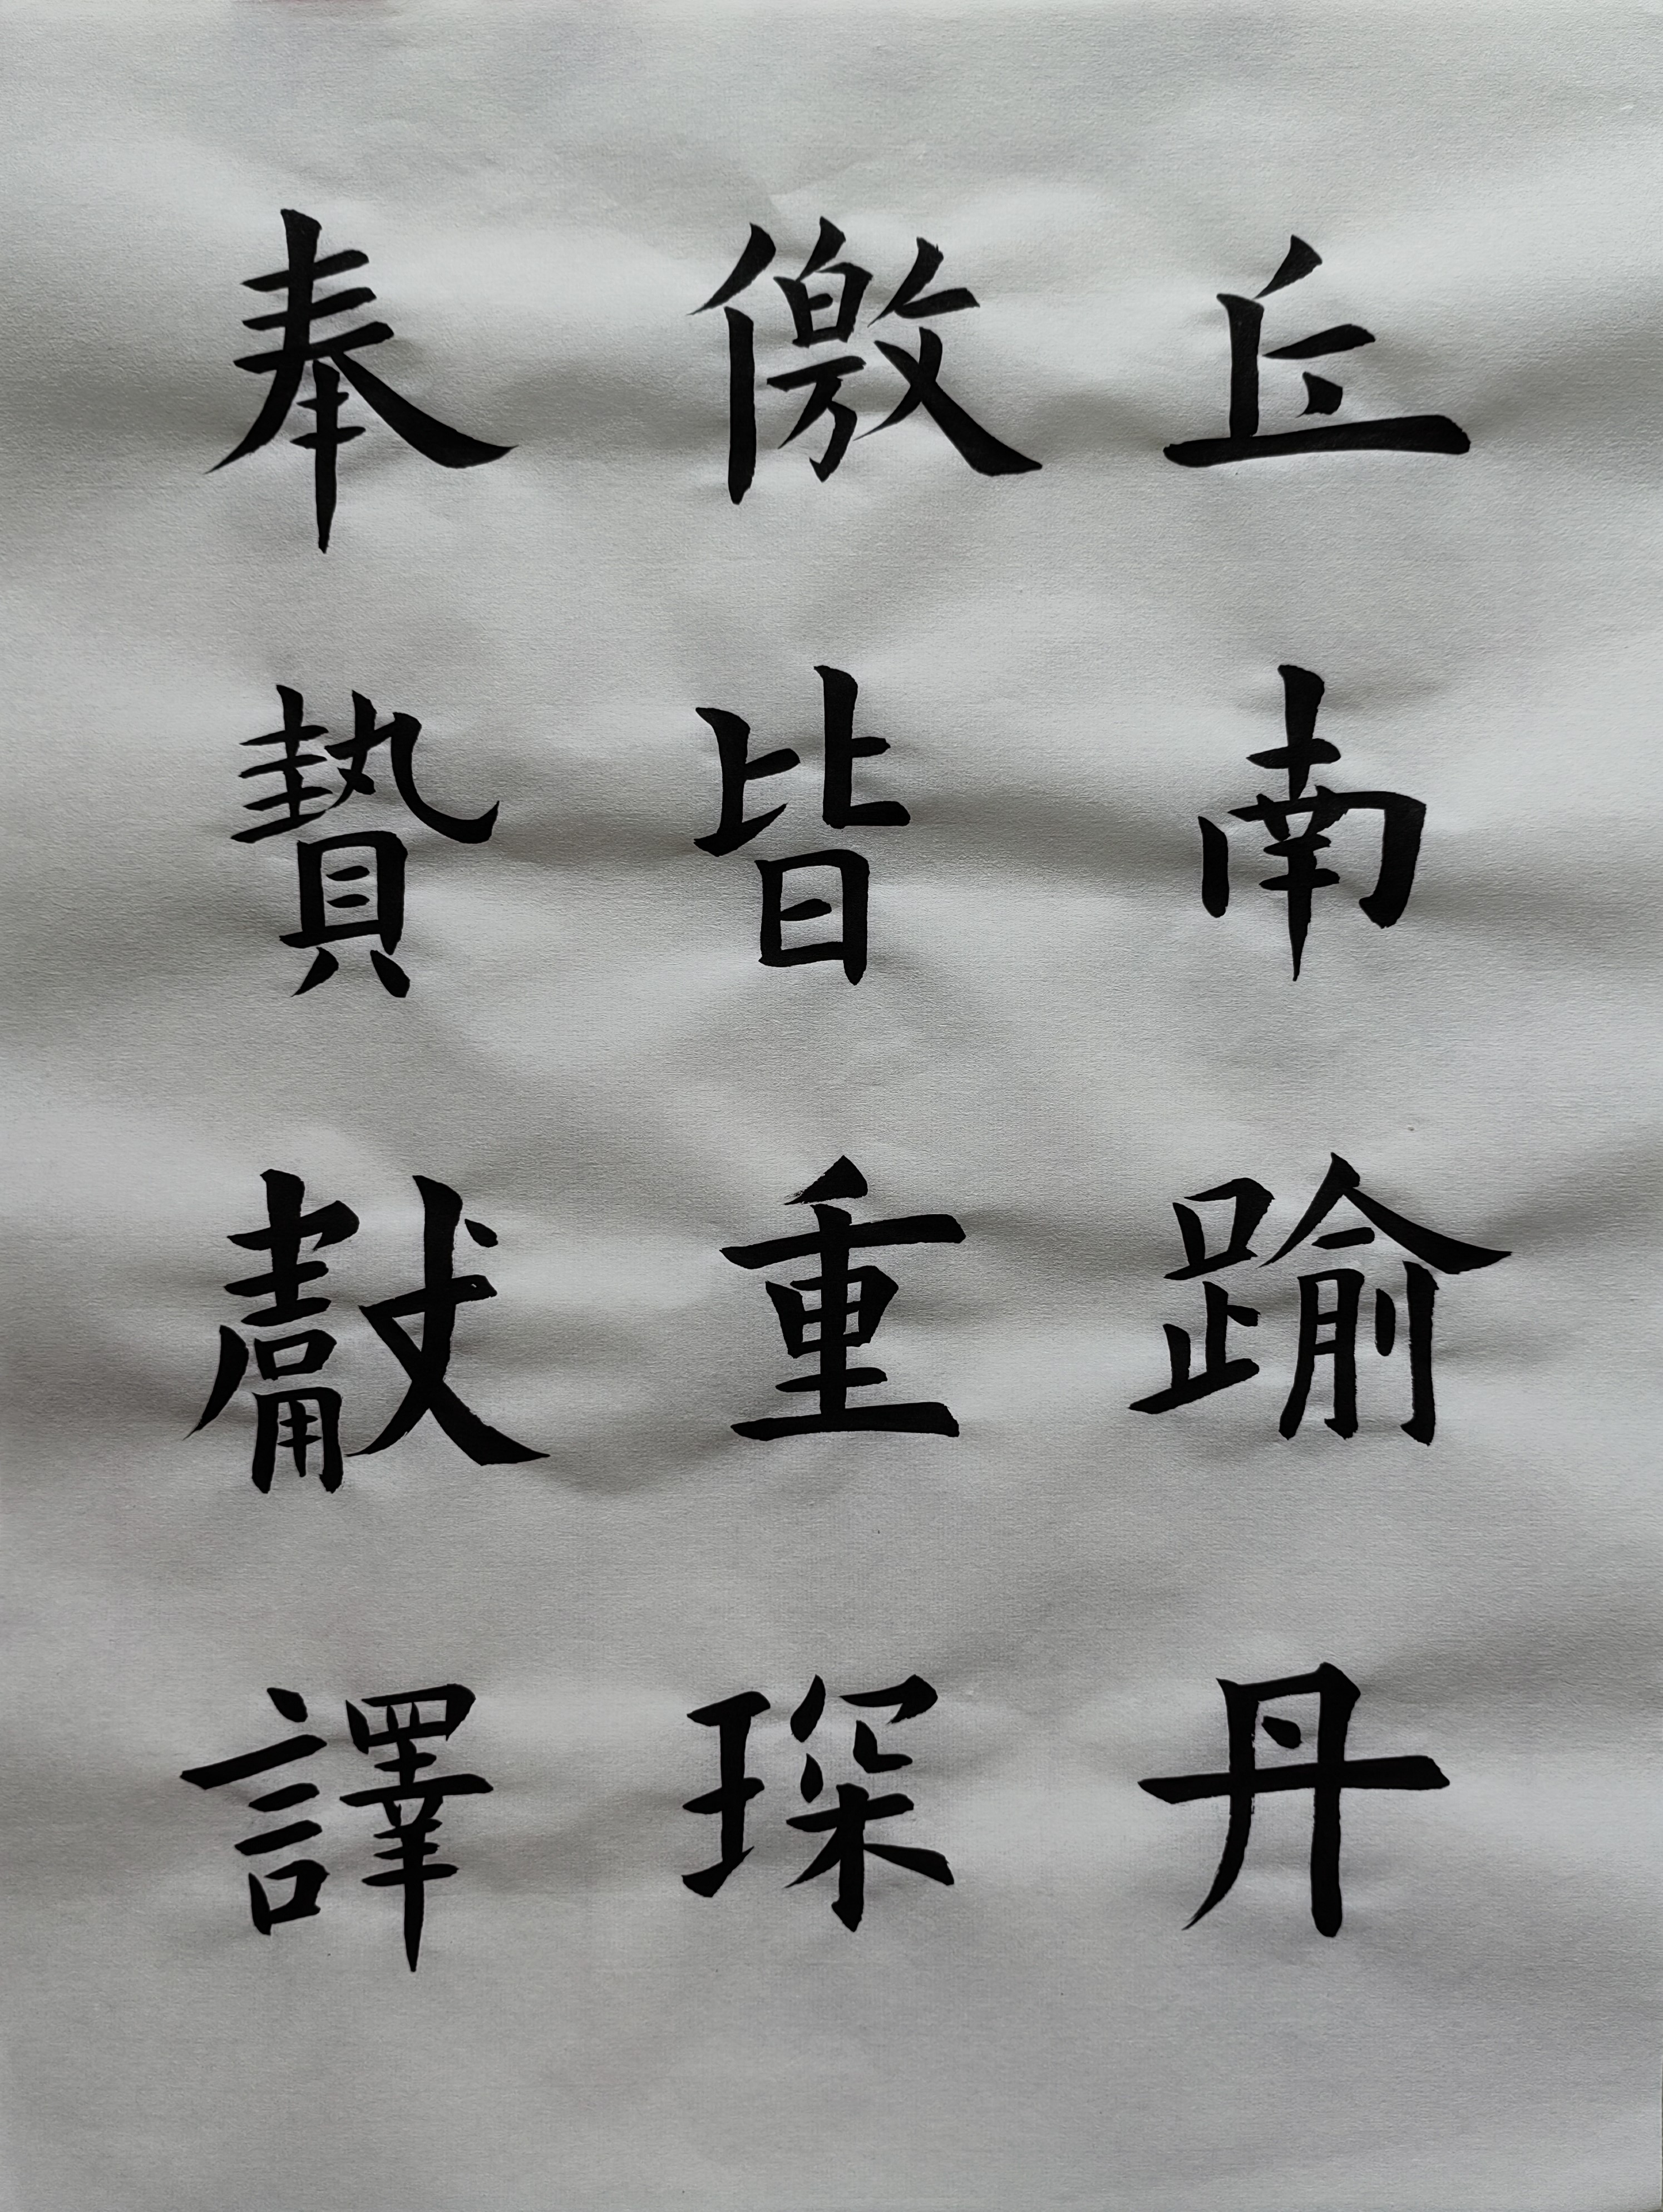 丘南踰丹
儌皆重琛
奉贄獻譯